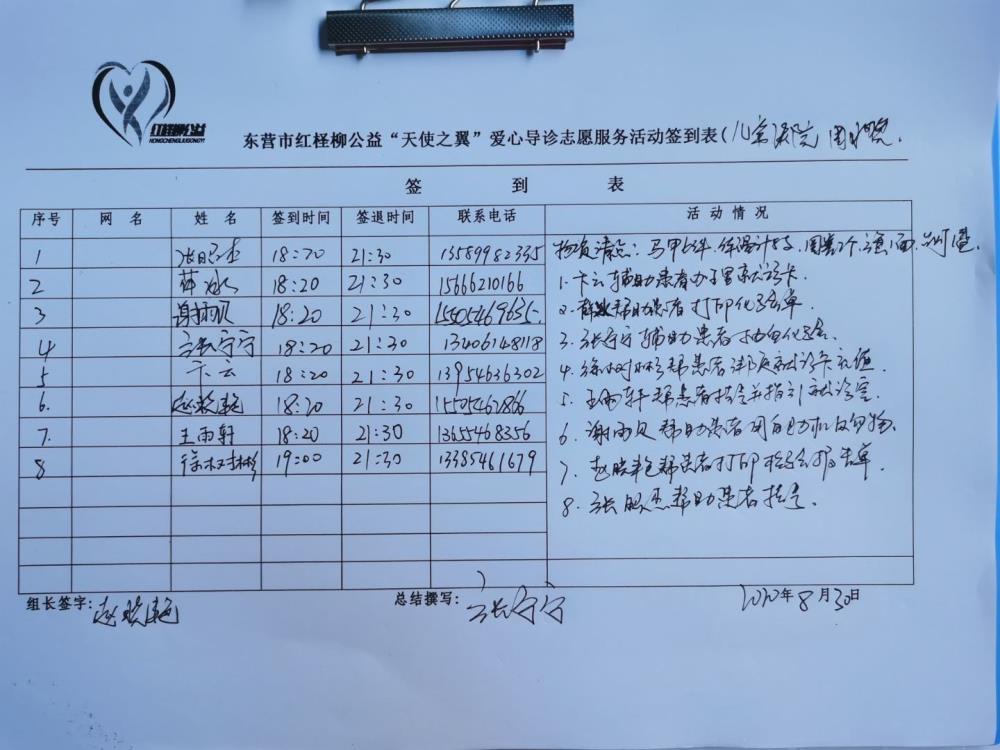 红柽柳公益
HONGCHENGLIUGONGYI
东营市红柽柳公益“天使之翼”爱心导诊志愿服务活动签到表(儿童医院
签 到 表
序号 网 名 姓 名 签到时间 签退时间 联系电话 活 动 情 况
1 18:20 21:30 13589982335 物资清点：马甲 体温计
2 薛冰 18:20 21:30 15666210166 1. 卞云辅助患者办理就诊卡
3 谢雨贝 18:20 21:30 15505469635 2. 薛冰帮助患者打印化验单.
4 张宁宁 18:20 21:30 13406148118 3. 张宁宁辅助患者抽血化验.
5 卞云 18:20 21:30 13954636302 4. 徐树彬帮患者 就诊卡充值
6. 赵晓艳 18:20 21:30 15505462866 5. 王雨轩帮患者挂号并指引就诊室.
7. 王雨轩 18:20 21:30 13655468356 6. 谢雨贝帮助患者用自助机
8 徐树彬 19:00 21:30 13385461679 7. 赵晓艳帮患者打印检验报告单.
8. 张 帮助患者挂号.
组长签字: 赵晓艳 总结撰写: 张宁宁 2020年8月30日